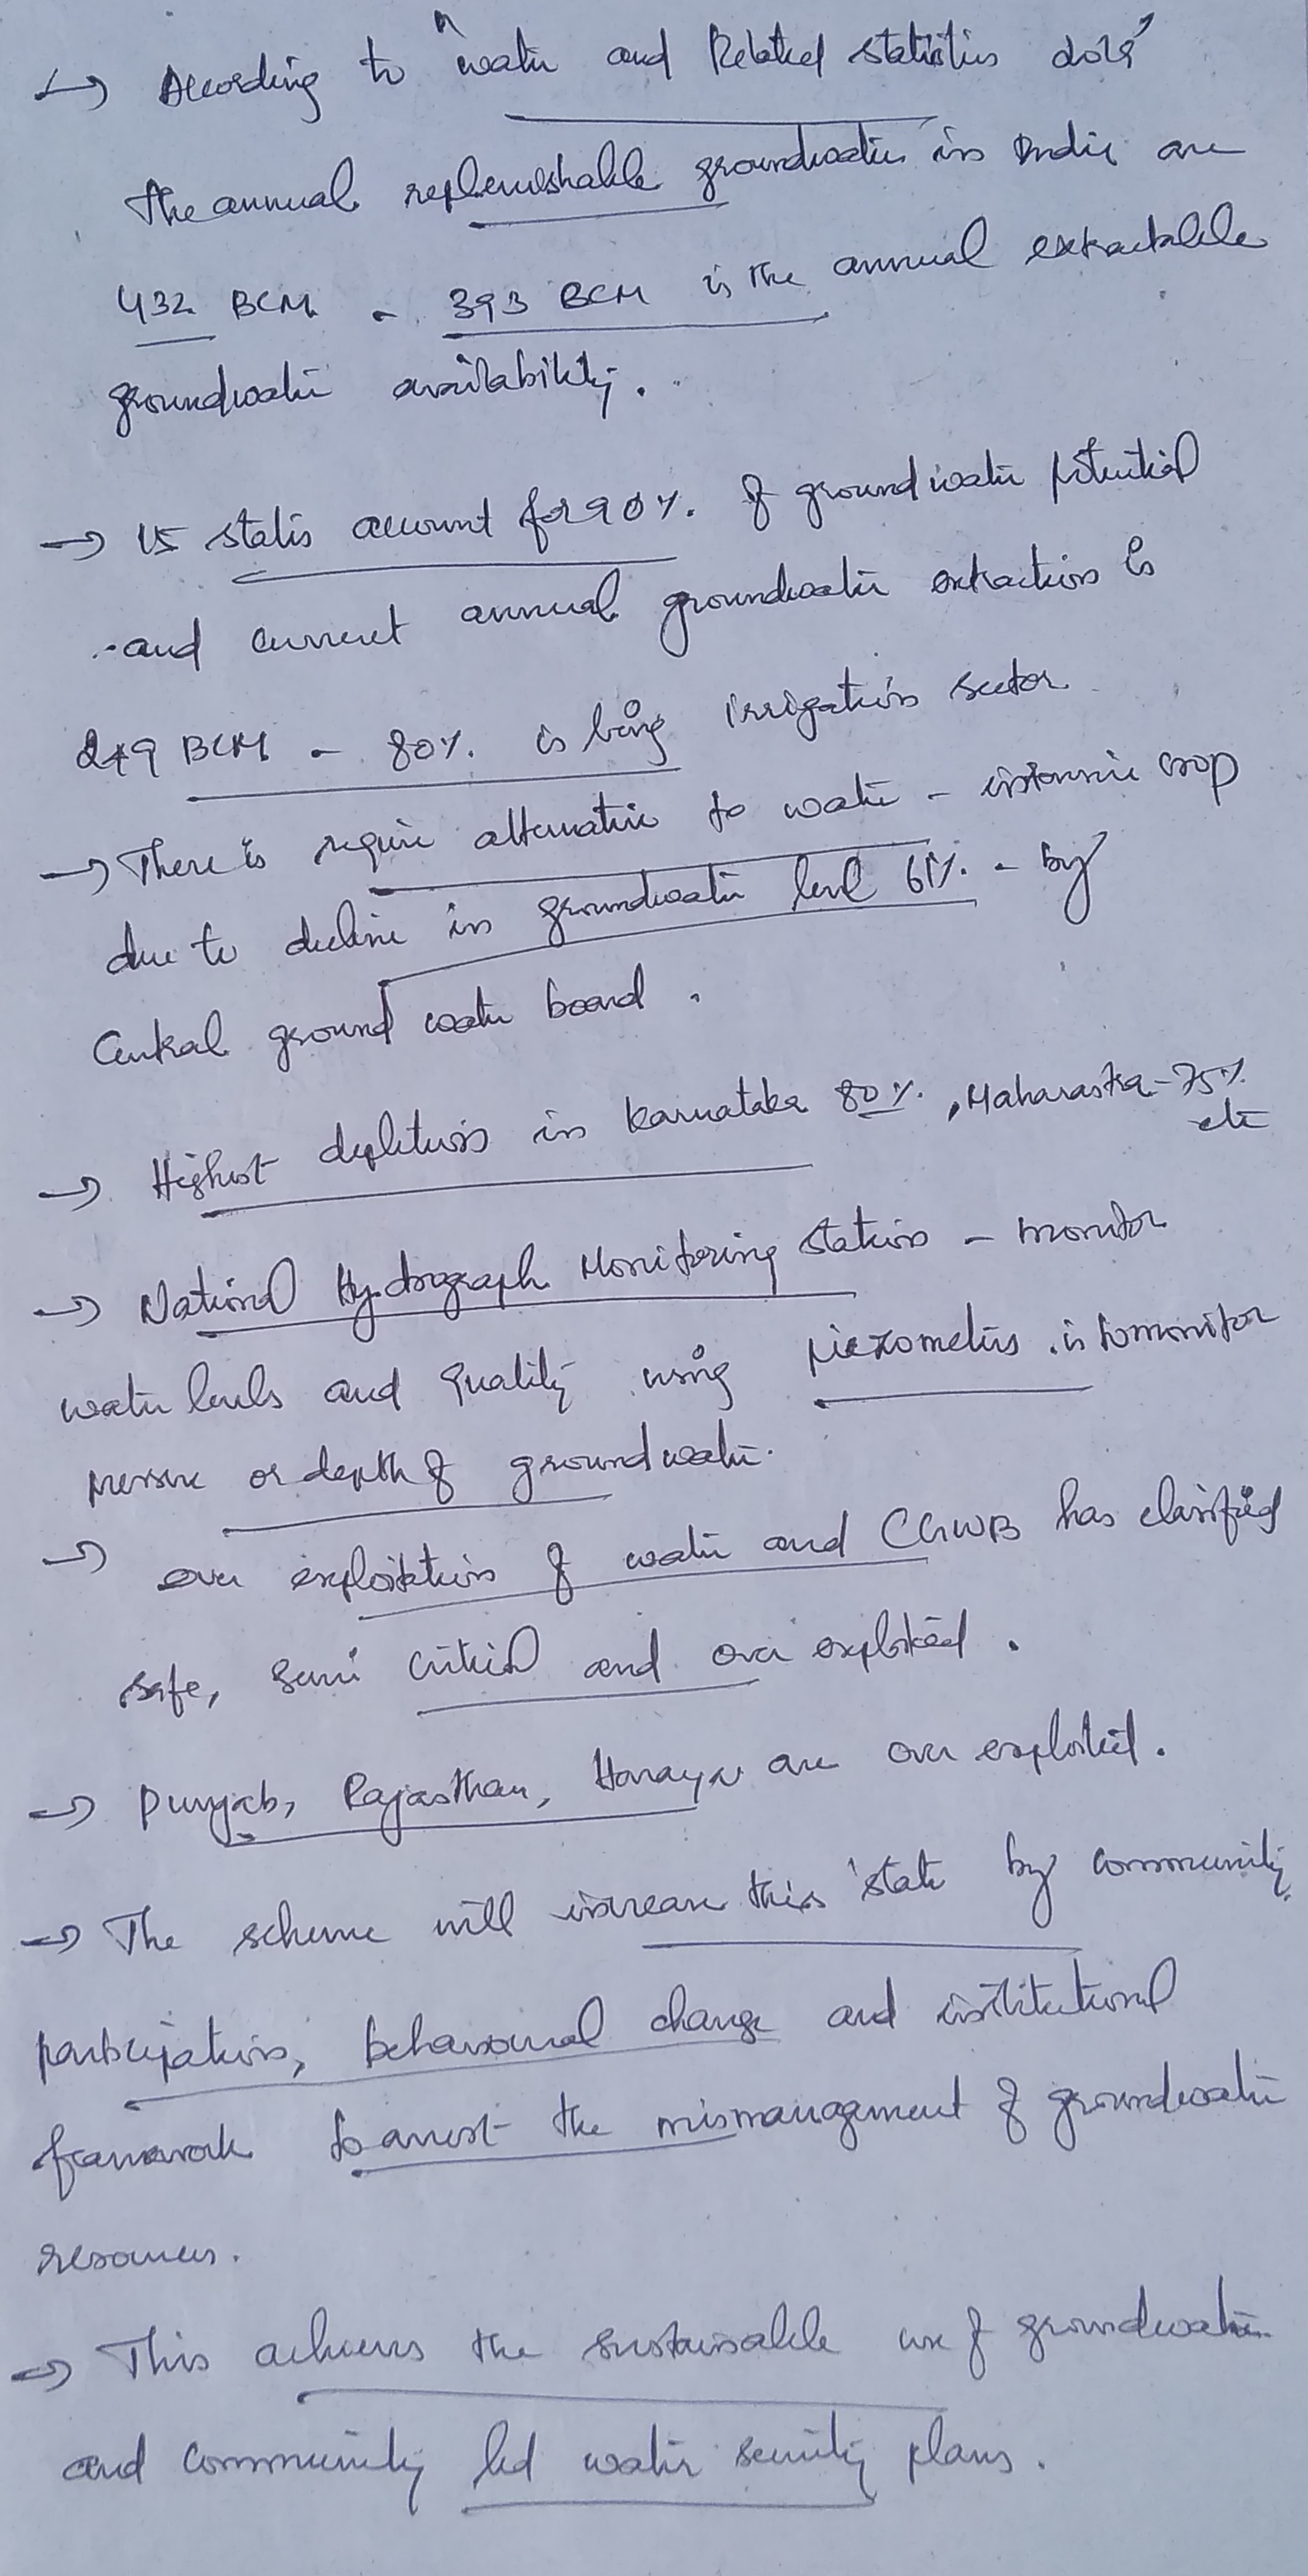 ↳ According to "water and Related statistics 2019"
The annual replenishable groundwater in India are
432 BCM - 393 BCM is the annual extractable
groundwater availability.
→ 15 states account for 90% of groundwater potential
and current annual groundwater extraction is
249 BCM - 80% is being irrigation sector
→ There is require alternative to water - intensive crop
due to decline in groundwater level 61% - by
Central ground water board.
→ Highest depletion in Karnataka 80%, Maharastra - 75%
etc
→ National Hydrograph Monitoring stations - monitor
water levels and quality using piezometers. is to monitor
pressure or depth of groundwater.
→ over exploitation of water and CGWB has classified
safe, semi critical and over exploited.
→ Punjab, Rajasthan, Harayn are over exploited.
→ The scheme will increase this state by community
participation, behavioural change and institutional
framework to arrest the mismanagement of groundwater
resources.
→ This achieves the sustainable use of groundwater
and community led water security plans.